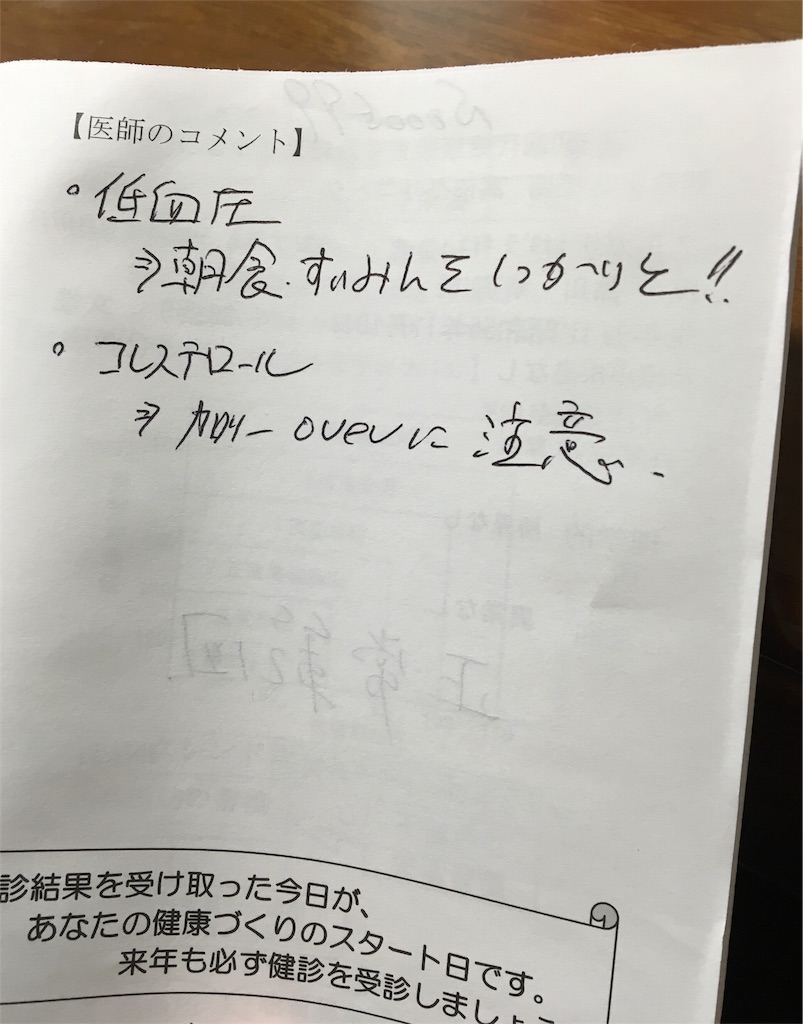 【医師のコメント】
・低血圧
⇒朝食・すいみんをしっかりと!!
・コレステロール
⇒カロリー overに注意。
診結果を受け取った今日が、
あなたの健康づくりのスタート日です。
来年も必ず健診を受診しましょう